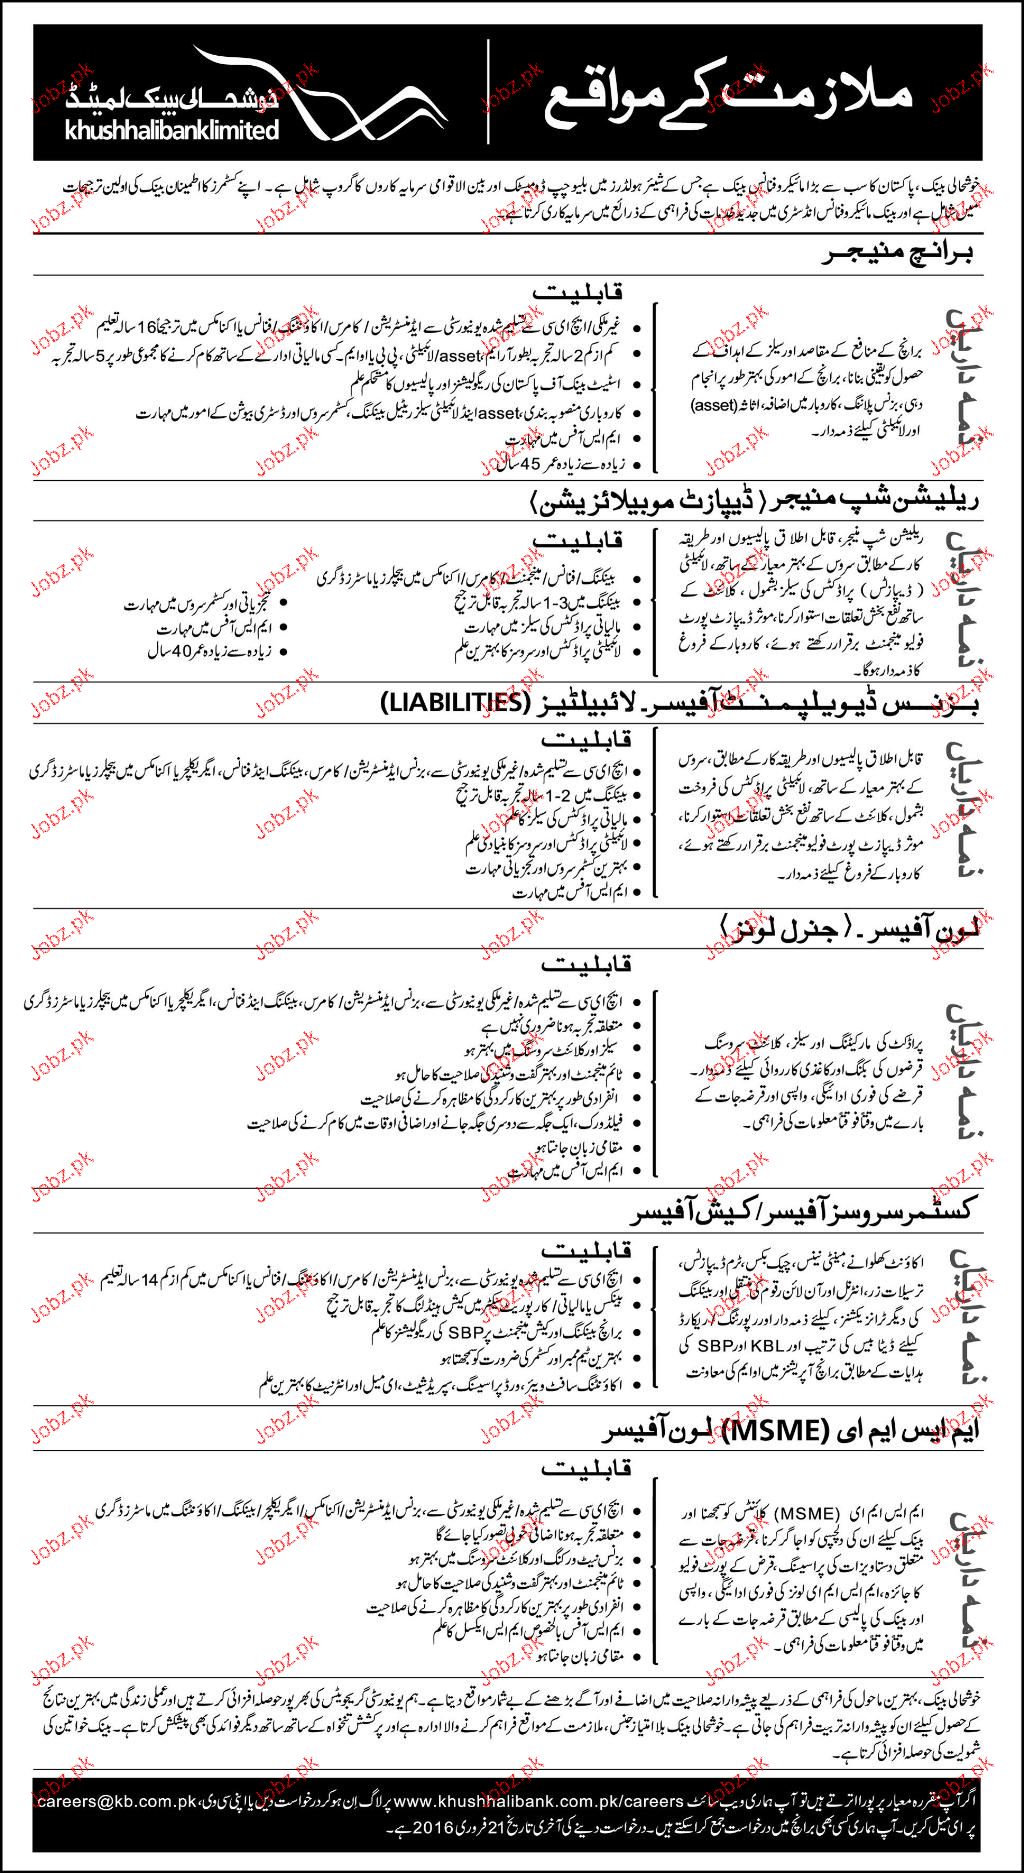 ملازمت کے مواقع
خوشحالی بینک لمیٹڈ
khushhalibanklimited
خوشحالی بینک، پاکستان کا سب سے بڑا مائیکروفنانس بینک ہے جس کے شیئر ہولڈرز میں بلیو چپ ڈومیسٹک اور بین الاقوامی سرمایہ کاروں کا گروپ شامل ہے۔ اپنے کسٹمرز کا اطمینان بینک کی اولین ترجیحات
میں شامل ہے اور بینک مائیکروفنانس انڈسٹری میں جدید خدمات کی فراہمی کے ذرائع میں سرمایہ کاری کرتا ہے۔
برانچ منیجر
ذمہ داریاں
برانچ کے منافع کے مقاصد اور سیلز کے اہداف کے
حصول کو یقینی بنانا، برانچ کے امور کی بہتر طور پر انجام
دہی، بزنس پلاننگ، کاروبار میں اضافہ، اثاثہ (asset)
اور لائبیلٹی کیلئے ذمہ دار۔
قابلیت
غیر ملکی/ایچ ای سی سے تسلیم شدہ یونیورسٹی سے ایڈمنسٹریشن/ کامرس/ اکاؤنٹنگ/ فنانس یا اکنامکس میں ترجیحاً 16 سالہ تعلیم
کم از کم 2 سالہ تجربہ بطور آر ایم، asset/لائبیلٹی، پی پی یا او ایم۔ کسی مالیاتی ادارے کے ساتھ کام کرنے کا مجموعی طور پر 5 سالہ تجربہ
اسٹیٹ بینک آف پاکستان کی ریگولیشنز اور پالیسیوں کا مستحکم علم
کاروباری منصوبہ بندی، asset اینڈ لائبیلٹی سیلز ریٹیل بینکنگ، کسٹمر سروس اور ڈسٹری بیوشن کے امور میں مہارت
ایم ایس آفس میں مہارت
زیادہ سے زیادہ عمر 45 سال
ریلیشن شپ منیجر (ڈیپازٹ موبیلائزیشن)
ذمہ داریاں
ریلیشن شپ منیجر، قابل اطلاق پالیسیوں اور طریقہ
کار کے مطابق سروس کے بہتر معیار کے ساتھ، لائبیلٹی
(ڈیپازٹس) پراڈکٹس کی سیلز بشمول، کلائنٹ کے
ساتھ نفع بخش تعلقات استوار کرنا، موثر ڈیپازٹ پورٹ
فولیو مینجمنٹ برقرار رکھتے ہوئے، کاروبار کے فروغ
کا ذمہ دار ہوگا۔
قابلیت
بینکنگ/ فنانس/ مینجمنٹ/ کامرس/ اکنامکس میں بیچلرز یا ماسٹرز ڈگری
بینکنگ میں 3-1 سالہ تجربہ قابل ترجیح
مالیاتی پراڈکٹس کی سیلز میں مہارت
لائبیلٹی پراڈکٹس اور سروسز کا بہترین علم
تجزیاتی اور کسٹمر سروس میں مہارت
ایم ایس آفس میں مہارت
زیادہ سے زیادہ عمر 40 سال
بزنس ڈیویلپمنٹ آفیسر۔ لائبیلٹیز (LIABILITIES)
ذمہ داریاں
قابل اطلاق پالیسیوں اور طریقہ کار کے مطابق، سروس
کے بہتر معیار کے ساتھ، لائبیلٹی پراڈکٹس کی فروخت
بشمول، کلائنٹ کے ساتھ نفع بخش تعلقات استوار کرنا،
موثر ڈیپازٹ پورٹ فولیو مینجمنٹ برقرار رکھتے ہوئے،
کاروبار کے فروغ کیلئے ذمہ دار۔
قابلیت
ایچ ای سی سے تسلیم شدہ/ غیر ملکی یونیورسٹی سے، بزنس ایڈمنسٹریشن/ کامرس، بینکنگ اینڈ فنانس، ایگریکلچر یا اکنامکس میں بیچلرز یا ماسٹرز ڈگری
بینکنگ میں 2-1 سالہ تجربہ قابل ترجیح
مالیاتی پراڈکٹس کی سیلز کا علم
لائبیلٹی پراڈکٹس اور سروسز کا بنیادی علم
بہترین کسٹمر سروس اور تجزیاتی مہارت
ایم ایس آفس میں مہارت
لون آفیسر۔ (جنرل لونز)
ذمہ داریاں
پراڈکٹ کی مارکیٹنگ اور سیلز، کلائنٹ سروسنگ
قرضوں کی بکنگ اور کاغذی کارروائی کیلئے ذمہ دار۔
قرضے کی فوری ادائیگی، واپسی اور قرضہ جات کے
بارے میں وقتاً فوقتاً معلومات کی فراہمی۔
قابلیت
ایچ ای سی سے تسلیم شدہ/ غیر ملکی یونیورسٹی سے، بزنس ایڈمنسٹریشن/ کامرس، بینکنگ اینڈ فنانس، ایگریکلچر یا اکنامکس میں بیچلرز یا ماسٹرز ڈگری
متعلقہ تجربہ ہونا ضروری نہیں ہے
سیلز اور کلائنٹ سروسنگ میں بہتر ہو
ٹائم مینجمنٹ اور بہتر گفت و شنید کی صلاحیت کا حامل ہو
انفرادی طور پر بہترین کارکردگی کا مظاہرہ کرنے کی صلاحیت
فیلڈ ورک، ایک جگہ سے دوسری جگہ جانے اور اضافی اوقات میں کام کرنے کی صلاحیت
مقامی زبان جانتا ہو
ایم ایس آفس میں مہارت
کسٹمر سروسز آفیسر/ کیش آفیسر
ذمہ داریاں
اکاؤنٹ کھلوانے، مینٹی نینس، چیک بکس، ٹرم ڈیپازٹس،
ترسیلات زر، انٹرنل اور آن لائن رقوم کی منتقلی اور بینکنگ
کی دیگر ٹرانزیکشنز، کیلئے ذمہ دار اور رپورٹنگ/ ریکارڈ
کیلئے ڈیٹا بیس کی ترتیب اور KBL اور SBP کی
ہدایات کے مطابق برانچ آپریشنز میں او ایم کی معاونت
قابلیت
ایچ ای سی سے تسلیم شدہ یونیورسٹی سے، بزنس ایڈمنسٹریشن/ کامرس/ اکاؤنٹنگ/ فنانس یا اکنامکس میں کم از کم 14 سالہ تعلیم
بینکس یا مالیاتی/ کارپوریٹ سیکٹر میں کیش ہینڈلنگ کا تجربہ قابل ترجیح
برانچ بینکنگ اور کیش مینجمنٹ پر SBP کی ریگولیشنز کا علم
بہترین ٹیم ممبر اور کسٹمر کی ضرورت کو سمجھتا ہو
اکاؤنٹنگ سافٹ ویئر، ورڈ پراسیسنگ، سپریڈ شیٹ، ای میل اور انٹرنیٹ کا بہترین علم
ایم ایس ایم ای (MSME) لون آفیسر
ذمہ داریاں
ایم ایس ایم ای (MSME) کلائنٹس کو سمجھنا اور
بینک کیلئے ان کی دلچسپی کو اجاگر کرنا، قرضہ جات سے
متعلق دستاویزات کی پراسیسنگ، قرض کے پورٹ فولیو
کا جائزہ، ایم ایس ایم ای لونز کی فوری ادائیگی، واپسی
اور بینک کی پالیسی کے مطابق قرضہ جات کے بارے
میں وقتاً فوقتاً معلومات کی فراہمی۔
قابلیت
ایچ ای سی سے تسلیم شدہ/ غیر ملکی یونیورسٹی سے، بزنس ایڈمنسٹریشن/ اکنامکس/ ایگریکلچر/ بینکنگ/ اکاؤنٹنگ میں ماسٹرز ڈگری
متعلقہ تجربہ ہونا اضافی خوبی تصور کیا جائے گا
بزنس نیٹ ورکنگ اور کلائنٹ سروسنگ میں بہتر ہو
ٹائم مینجمنٹ اور بہتر گفت و شنید کی صلاحیت کا حامل ہو
انفرادی طور پر بہترین کارکردگی کا مظاہرہ کرنے کی صلاحیت
ایم ایس آفس بالخصوص ایم ایس ایکسل کا علم
مقامی زبان جانتا ہو
خوشحالی بینک، بہترین ماحول کی فراہمی کے ذریعے پیشہ وارانہ صلاحیت میں اضافے اور آگے بڑھنے کے بے شمار مواقع دیتا ہے۔ ہم یونیورسٹی گریجویٹس کی بھرپور حوصلہ افزائی کرتے ہیں اور عملی زندگی میں بہترین نتائج
کے حصول کیلئے ان کو پیشہ وارانہ تربیت فراہم کی جاتی ہے۔ خوشحالی بینک بلا امتیاز جنس، ملازمت کے مواقع فراہم کرنے والا ادارہ ہے اور پرکشش تنخواہ کے ساتھ ساتھ دیگر فوائد کی بھی پیشکش کرتا ہے۔ بینک خواتین کی
شمولیت کی حوصلہ افزائی کرتا ہے۔
اگر آپ مقررہ معیار پر پورا اترتے ہیں تو آپ ہماری ویب سائٹ www.khushhalibank.com.pk/careers پر لاگ اِن ہو کر درخواست دیں یا اپنی سی وی، careers@kb.com.pk
پر ای میل کریں۔ آپ ہماری کسی بھی برانچ میں درخواست جمع کرا سکتے ہیں۔ درخواست دینے کی آخری تاریخ 21 فروری 2016 ہے۔
Jobz.pk